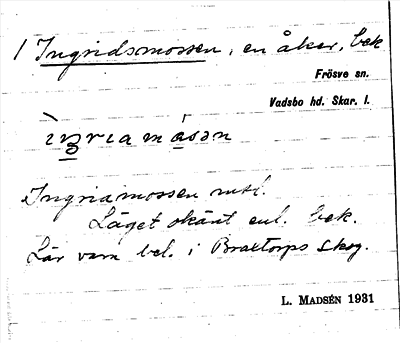 1 Ingridsmossen, en åker, bek
Frösve sn.
Vadsbo hd. Skar. l.
Ingriamossen mtl.
Läget okänt enl. bek.
Lär vara bel. i Braxtorps skog.
L. MADSÉN 1931